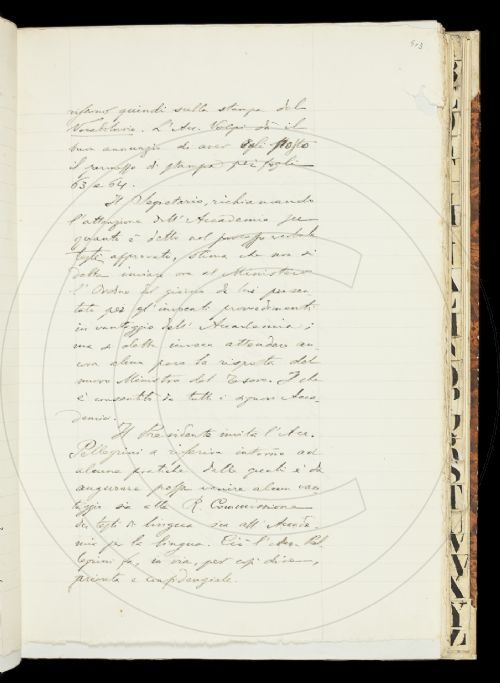 513
riferire quindi sulla stampa del
Vocabolario. L'Acc. Volpi dà il
buon annunzio di aver egli posto
il permesso di stampa pei fogli
63 e 64.
Il Segretario, richiamando
l'attenzione dell'Accademia su
quanto è detto nel processo verbale
testè approvato, stima che non si
debba inviare ora al Ministero
l'Ordine del giorno da lui presen-
tato per gl'invocati provvedimenti
in vantaggio dell'Accademia;
ma si debba invece attendere an-
cora alcun poco la risposta del
nuovo Ministro del Tesoro. Il che
è consentito da tutti i signori Acca-
demici.
Il Presidente invita l'Acc.
Pellegrini a riferire intorno ad
alcune pratiche dalle quali è da
augurare possa venire alcun van-
taggio sia alla R. Commissione
dei testi di lingua sia all'Accade-
mia per la lingua. Ciò l'Acc. Pel-
legrini fa, in via, per così dire,
privata e confidenziale.
B
L
R
S
T
V
W
X
Y
Z